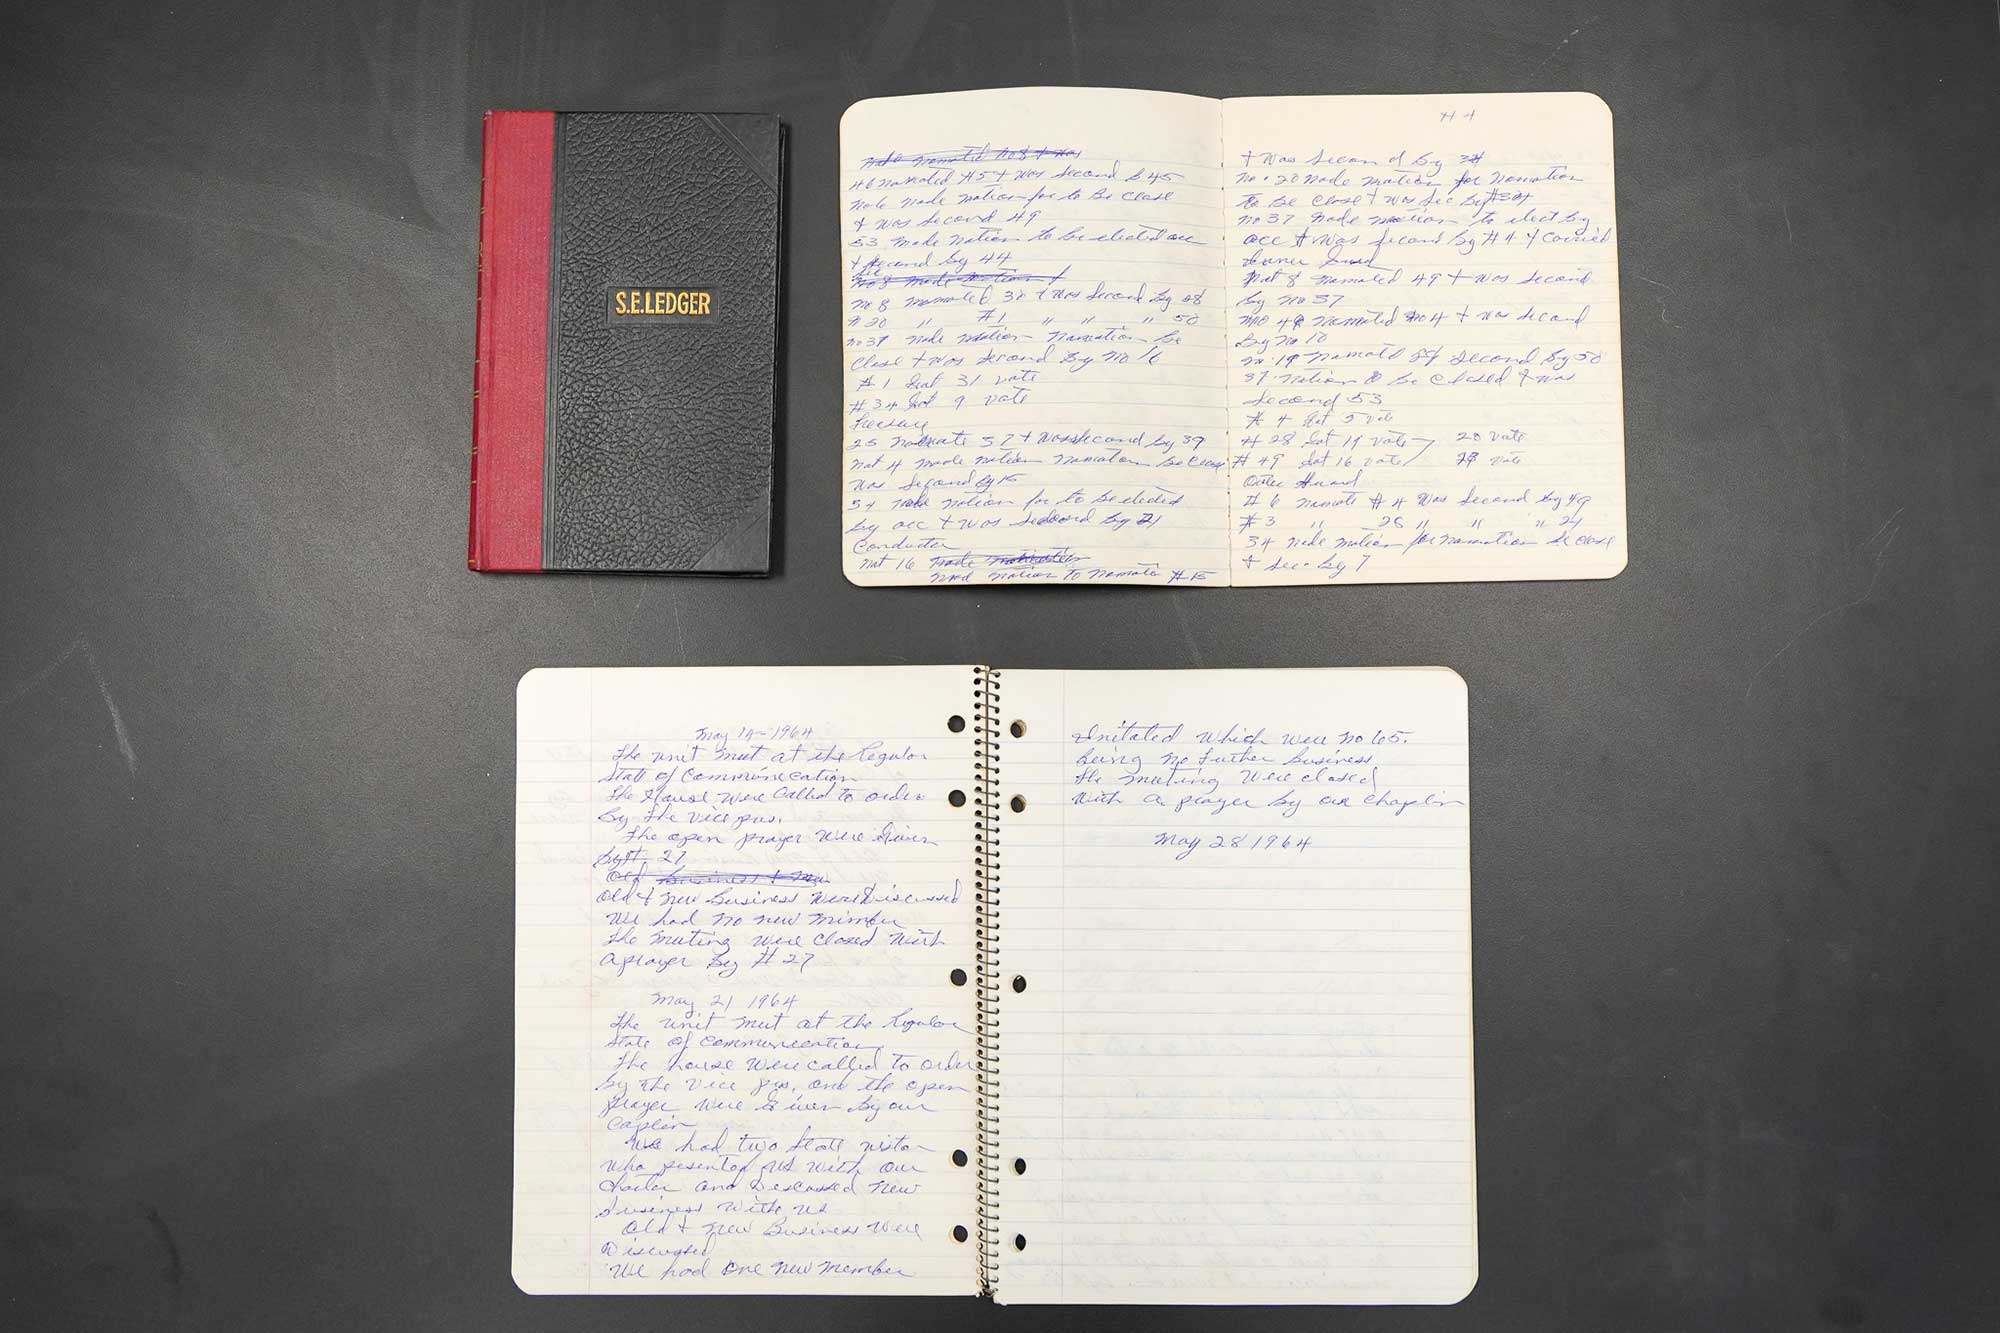 S.E.LEDGER
46 Nomated #5 + was second B 45
No 6 made motion for to Be close
+ was second 49
53 made motion to be elected acc
+ second by 44
No 8 Nomated 34 + was second By 28
# 20 " #1 " " " 50
No 37 made motion Nomation be
close + was second By No 16
# 1 Got 31 vote
# 34 Got 9 vote
25 Nomate 57 + was second by 39
Nat 4 made motion Nomation be close
was second by 15
54 made motion for to be elected
by acc + was second by 21
Conductor
Nat 16 made
mad motion to Nomate # 15
# 4
+ was second by 34
No. 20 made motion for Nomation
to be close + was sec by #34
No 37 made motion to elect by
acc + was second by # 44 carried
Inner Guard
Nat 8 Nomated 49 + was second
by No 37
No 49 Nomated No 4 + was second
By No 10
No. 19 Nomate 28 second by 50
37. motion to be closed + was
second 53
# 4 Got 5 vote
# 28 Got 19 vote 20 vote
# 49 Got 16 vote 28 vote
Outer Guard
# 6 Nomate # 4 was second by 49
# 3 " 25 " " " 24
34 made motion for Nomation be close
+ sec. by 7
May 14-1964
The unit meet at the Regular
State of Communication
The House were called to order
By the vice pres.
The open prayer were Given
by #. 27
Old Business + New
Old + New Business were Discussed
We had no new member
The meeting were closed with
a prayer By # 27
May 21 1964
The unit meet at the Regular
State of Communication
The house were called to order
by the vice pres, and the open
prayer were Given by our
Caplin
We had two State visitor
who pesented us with our
charter and Descussed New
Business with us
Old + New Business were
Discussed
We had one new member
Initated which were No 65.
Being no Futher Business
the meeting were closed
with a prayer by our chaplin
May 28 1964